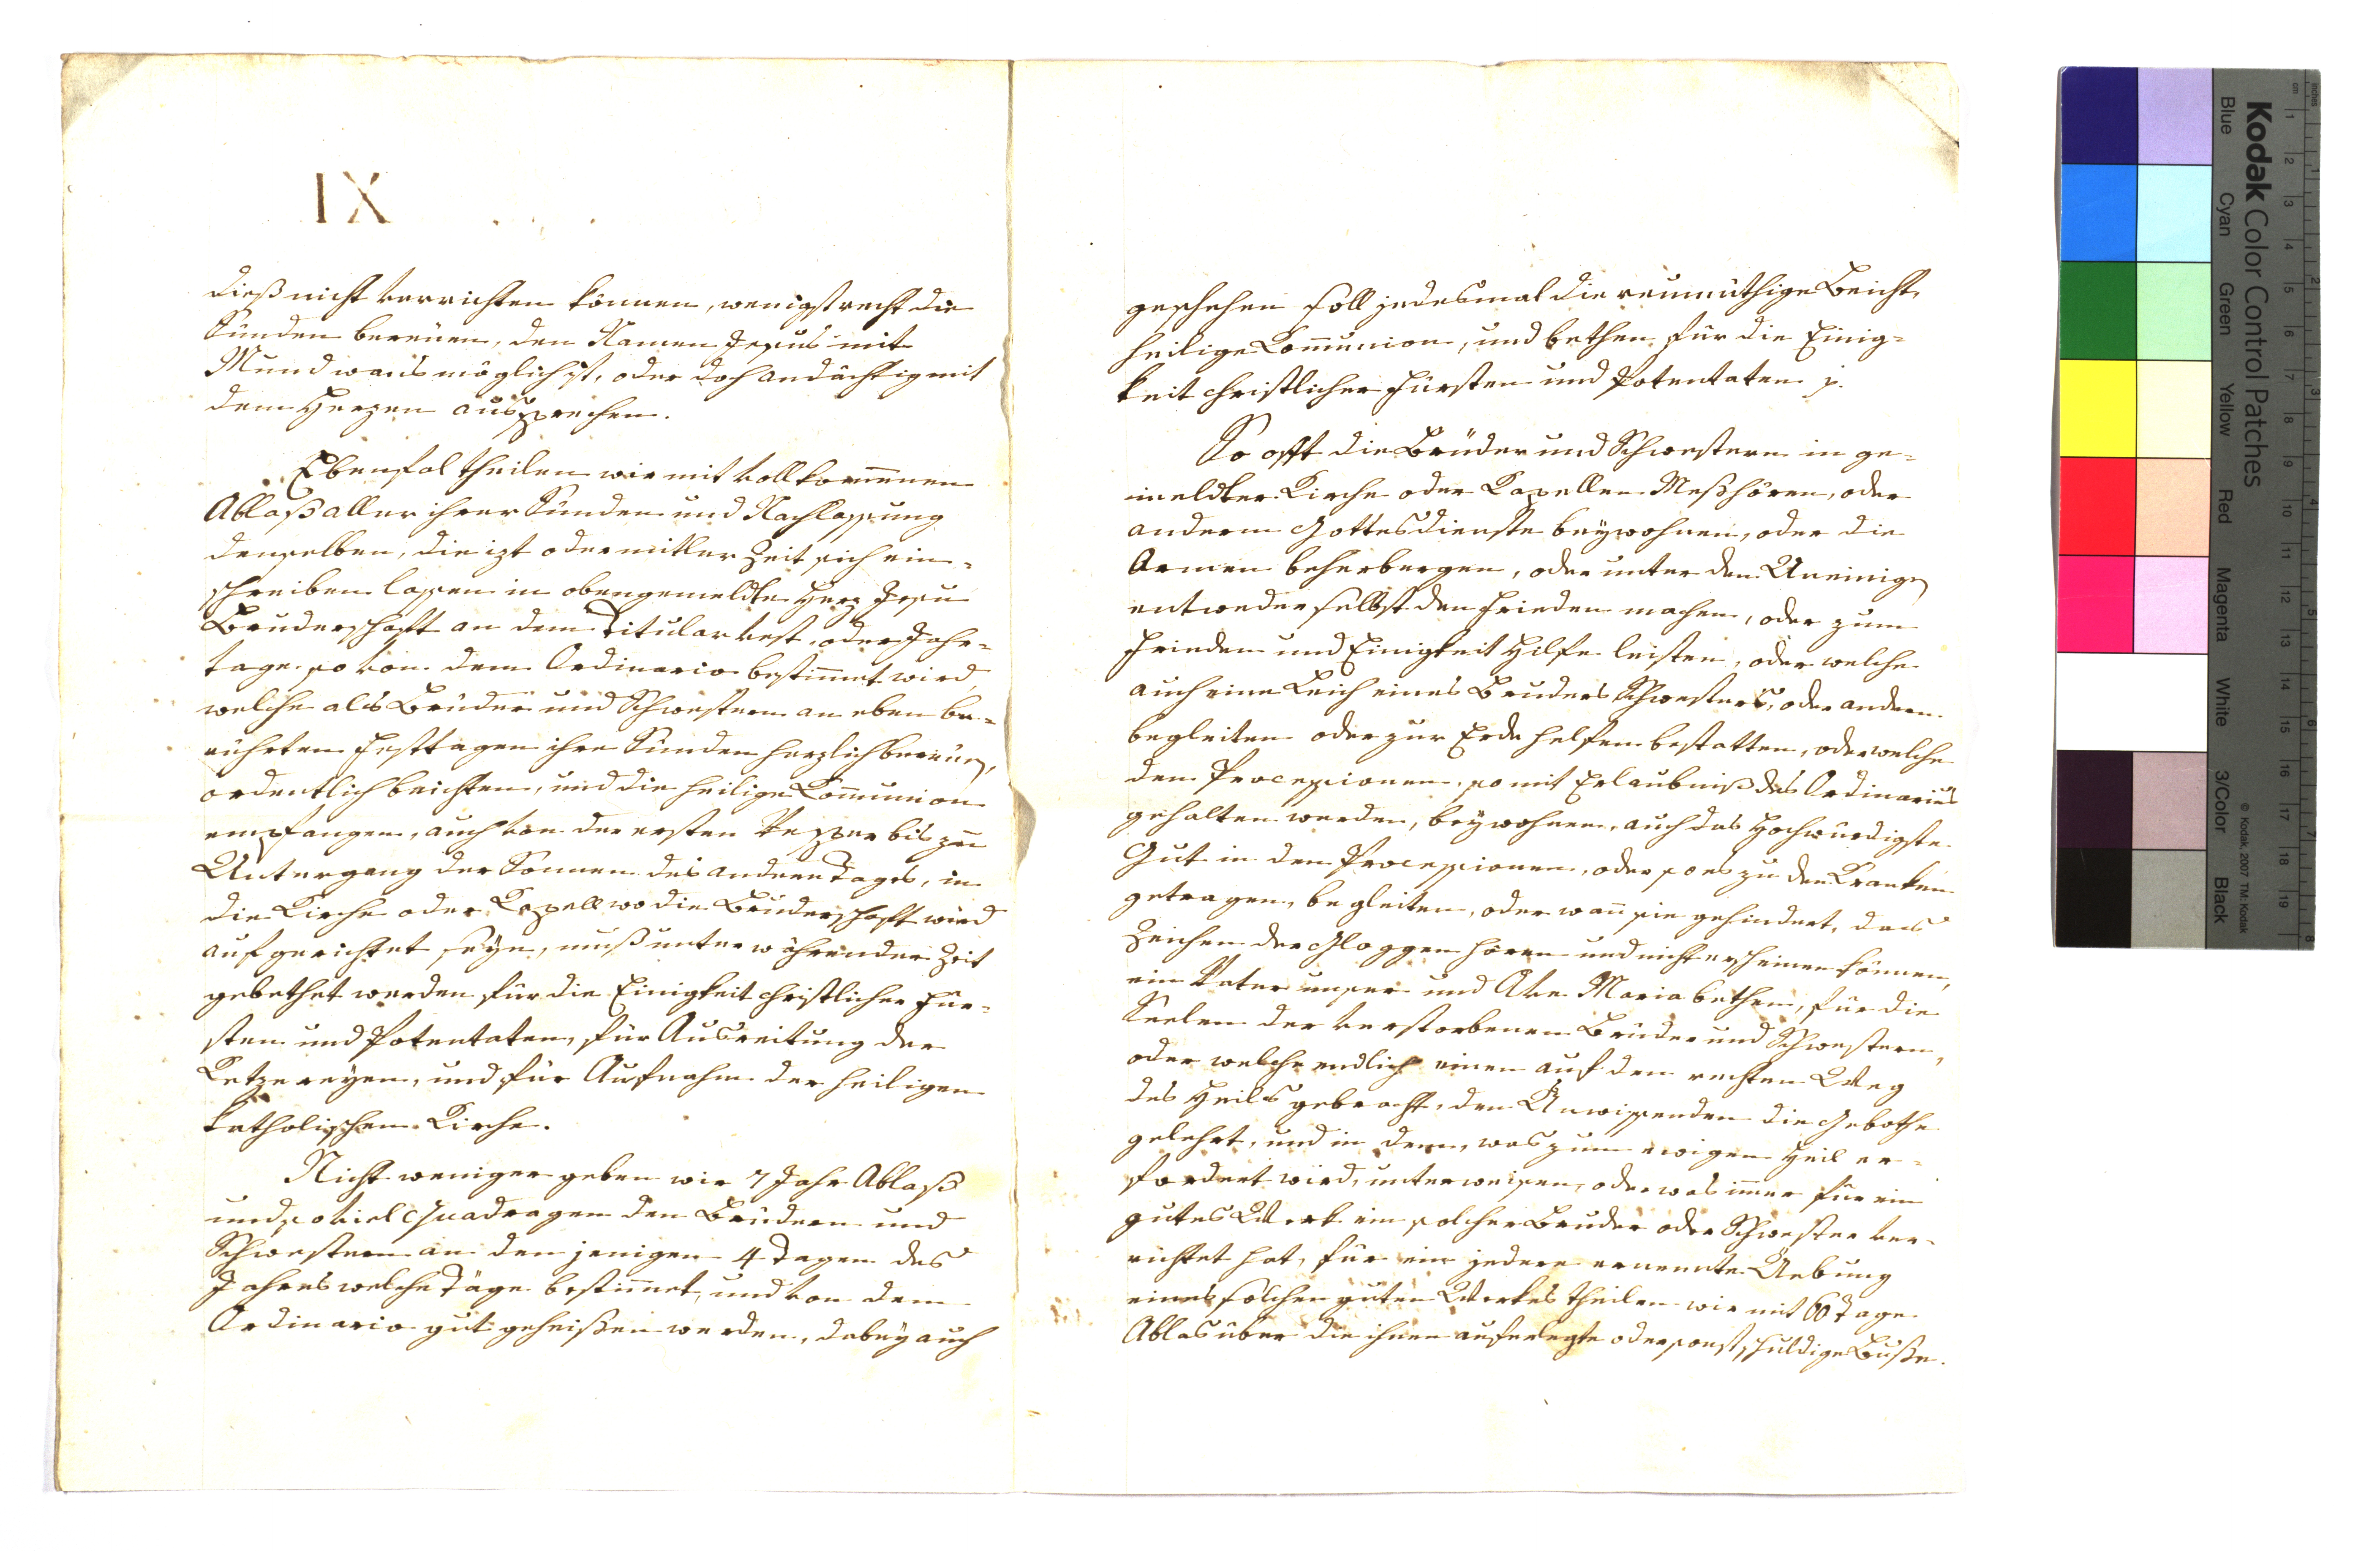 IX
dieß nicht verrichten können, wenigst recht die
Sünden bereüen, den Namen Jesus mit
Mund wans möglich ist, oder doch andächtig mit
dem Herzen aussprechen.
Ebenfal theilen wir mit vollkom̄enen
Ablaß aller ihrer Sünden und Nachlassung
denselben, die izt oder mitler Zeit sich ein-
schreiben lassen in obengemeldte Herz Jesu
Bruderschaft an dem Titular vest oder Jahr-
tage so von dem Ordinario bestim̄et wird
welche als Brüder und Schwestern an eben be-
rührten Festtagen ihre Sünden herzlich bereüen,
ordentlich beichten, und die heilige Com̄union
empfangen, auch von der ersten Vesper bis zum
Untergang der Sonnen des andern Tages, in
die Kirche oder Kapell wo die Bruderschaft wird
aufgerichtet seyn, muß unter währender Zeit
gebethet werden für die Einigkeit christlicher Für-
sten und Potentaten, für Ausreitung der
Ketzereyen, und für Aufnahm der heiligen
katholischen Kirche.
Nicht weniger geben wir 7 Jahr Ablaß
und so viel Quadragen den Brüdern und
Schwestern an den jenigen 4 Tagen des
Jahres welche Täge bestim̄et, und von dem
Ordinario gut geheißen werden, dabey auch
geschehen soll jedesmal die reumüthige Beicht,
heilige Com̄union, und bethen für die Einig-
keit christlicher Fürsten und Potentaten
So offt die Brüder und Schwestern in ge-
meldter Kirche oder Kapellen Meßhören, oder
andern Gottesdienste beywohnen, oder die
Armen beherbergen, oder unter den Uneinigen
entweder selbst den Frieden machen, oder zum
Frieden und Einigkeit Hilfe leisten, oder welche
auch eine Leich eines Bruders Schwesters, oder andern
begleiten oder zur Erde helfen bestatten, oder welche
den Processionen, so mit Erlaubniß des Ordinarius
gehalten werden, beywohnen, auch das Hochwürdigste
Gut in den Processionen, oder so es zu den Kranken
getragen, begleiten, oder wan̄ sie gehindert, das
Zeichen der Gloggen hören und nicht erscheinen können,
ein Vater unser und Ave Maria bethen, für die
Seelen der verstorbenen Brüder und Schwestern,
oder welche endlich einen auf den rechten Weg
des Heils gebracht, den Unwissenden die Gebothe
gelehrt, und in dem, was zum ewigen Heil er-
fordert wird, unterweisen, oder was im̄er für ein
gutes Werk ein solcher Bruder oder Schwester ver-
richtet hat, für ein jedere ernennte Uebung
eines solchen guten Werkes theilen wir mit 60 Tage
Ablas über die ihnen auferlegte oder sonst schuldige Buße.
Kodak Color Control Patches
Blue
Cyan
Green
Yellow
Red
Magenta
White
3/Color
Black
© Kodak, 2007 TM: Kodak
inches
cm
1
2
3
4
5
6
7
8
9
10
11
12
13
14
15
16
17
18
19